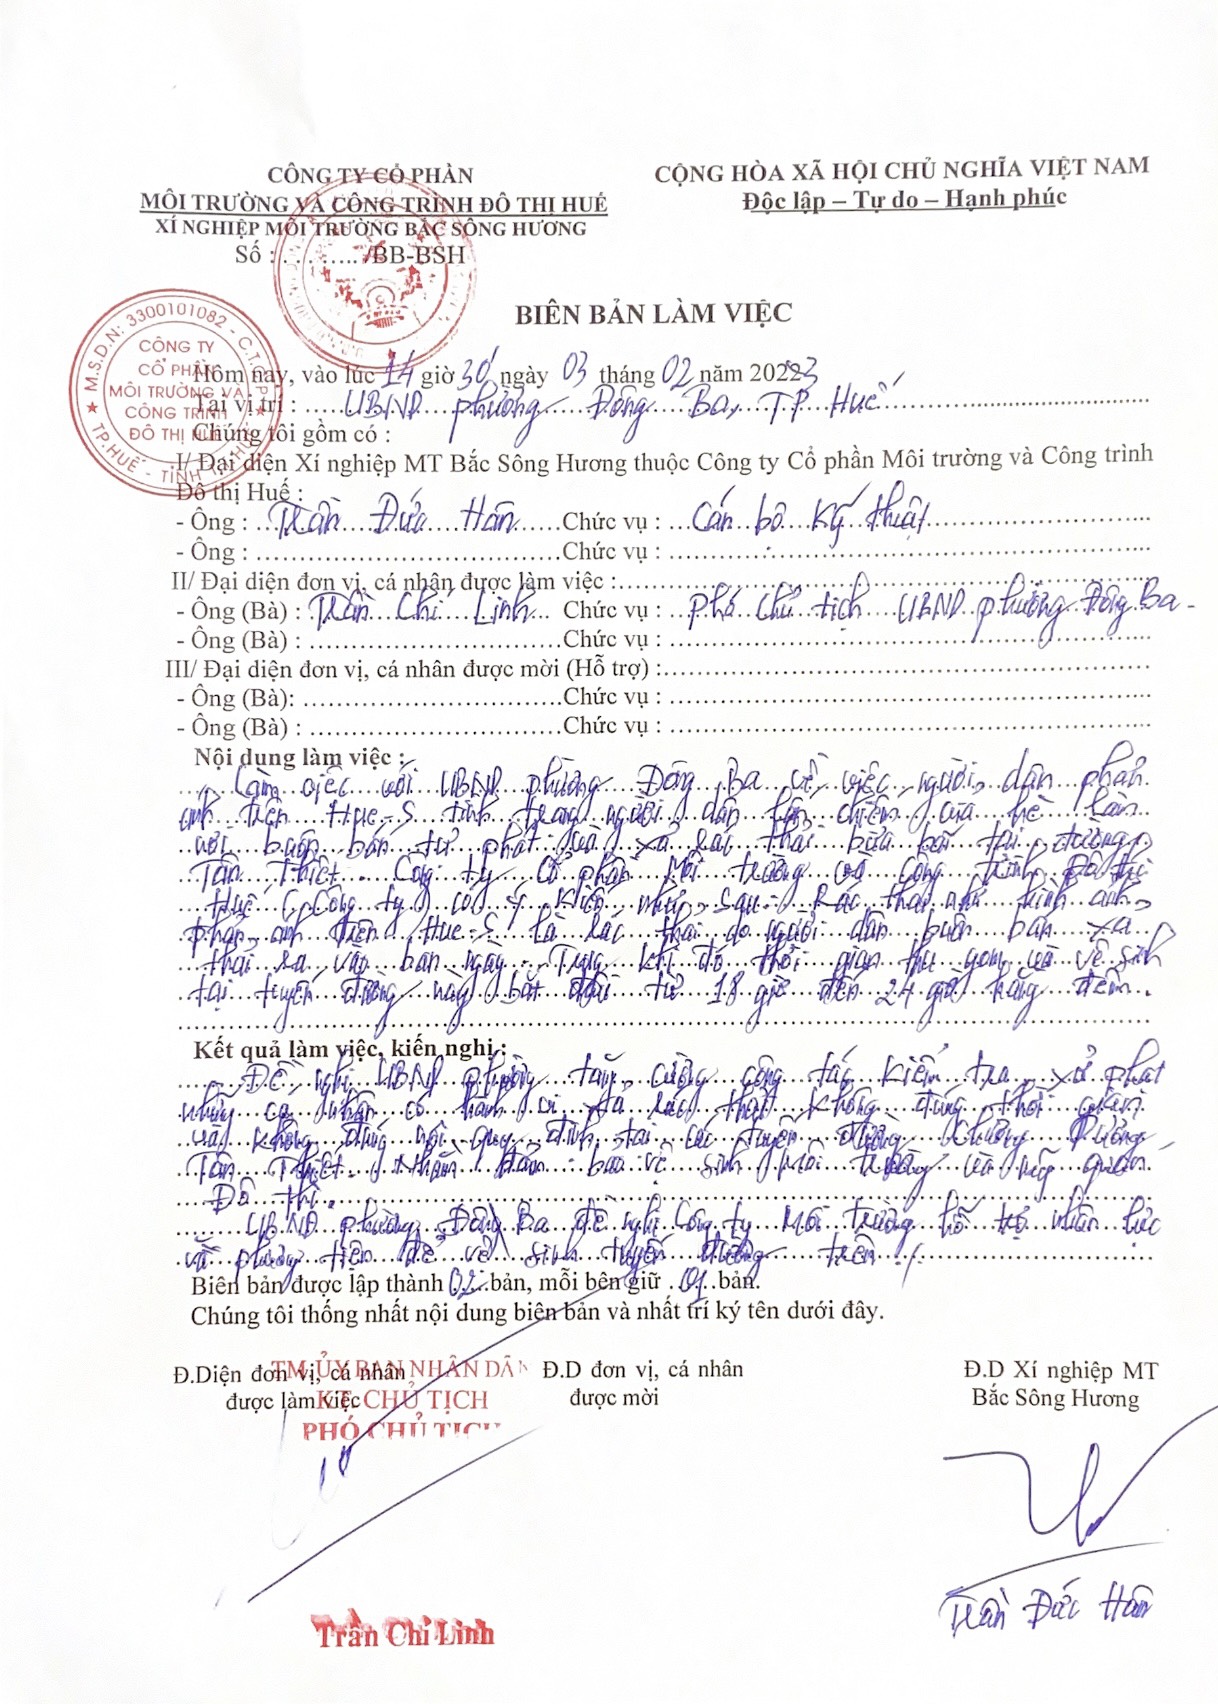 CÔNG TY CỔ PHẦN
MÔI TRƯỜNG VÀ CÔNG TRÌNH ĐÔ THỊ HUẾ
XÍ NGHIỆP MÔI TRƯỜNG BẮC SÔNG HƯƠNG
Số : ......... /BB-BSH
CỘNG HÒA XÃ HỘI CHỦ NGHĨA VIỆT NAM
Độc lập – Tự do – Hạnh phúc
M.S.D.N: 3300101082 - C.T.C.P
CÔNG TY
CỔ PHẦN
MÔI TRƯỜNG VÀ
CÔNG TRÌNH
ĐÔ THỊ HUẾ
TP.HUẾ - TỈNH T.T.HUẾ
BIÊN BẢN LÀM VIỆC
Hôm nay, vào lúc 14 giờ 30' ngày 03 tháng 02 năm 2023
Tại vị trí : UBND phường Đông Ba, TP Huế
Chúng tôi gồm có :
I/ Đại diện Xí nghiệp MT Bắc Sông Hương thuộc Công ty Cổ phần Môi trường và Công trình
Đô thị Huế :
- Ông : Trần Đức Hân Chức vụ : Cán bộ Kỹ thuật
- Ông : Chức vụ :
II/ Đại diện đơn vị, cá nhân được làm việc :
- Ông (Bà) : Trần Chí Linh Chức vụ : Phó Chủ tịch UBND phường Đông Ba -
- Ông (Bà) : Chức vụ :
III/ Đại diện đơn vị, cá nhân được mời (Hỗ trợ) :
- Ông (Bà): Chức vụ :
- Ông (Bà) : Chức vụ :
Nội dung làm việc :
Làm việc với UBND phường Đông Ba về việc người dân phản
ánh trên Hue-S tình trạng người dân lấn chiếm vỉa hè làm
nơi buôn bán tự phát và xả rác thải bừa bãi tại đường
Tôn Thiệp. Công ty Cổ phần Môi trường và Công trình Đô thị
Huế (Công ty) có ý kiến như sau: Rác thải như hình ảnh
phản ánh trên Hue-S là rác thải do người dân buôn bán xả
thải ra vào ban ngày. Trong khi đó thời gian thu gom và vệ sinh
tại tuyến đường này bắt đầu từ 18 giờ đến 24 giờ hằng đêm.
Kết quả làm việc, kiến nghị :
Đề nghị UBND phường tăng cường công tác kiểm tra xử phạt
những cá nhân có hành vi xả rác thải không đúng thời gian
và không đúng nội quy định tại các tuyến đường, đường
Tôn Thiệp. Nhằm đảm bảo vệ sinh môi trường và mỹ quan
Đô thị.
UBND phường Đông Ba đề nghị Công ty Môi trường hỗ trợ nhân lực
và phương tiện để vệ sinh tuyến đường trên ./.
Biên bản được lập thành 02 bản, mỗi bên giữ 01 bản.
Chúng tôi thống nhất nội dung biên bản và nhất trí ký tên dưới đây.
Đ.Diện đơn vị, cá nhân
được làm việc
TM.ỦY BAN NHÂN DÂN
KT.CHỦ TỊCH
PHÓ CHỦ TỊCH
Trần Chí Linh
Đ.D đơn vị, cá nhân
được mời
Đ.D Xí nghiệp MT
Bắc Sông Hương
Trần Đức Hân